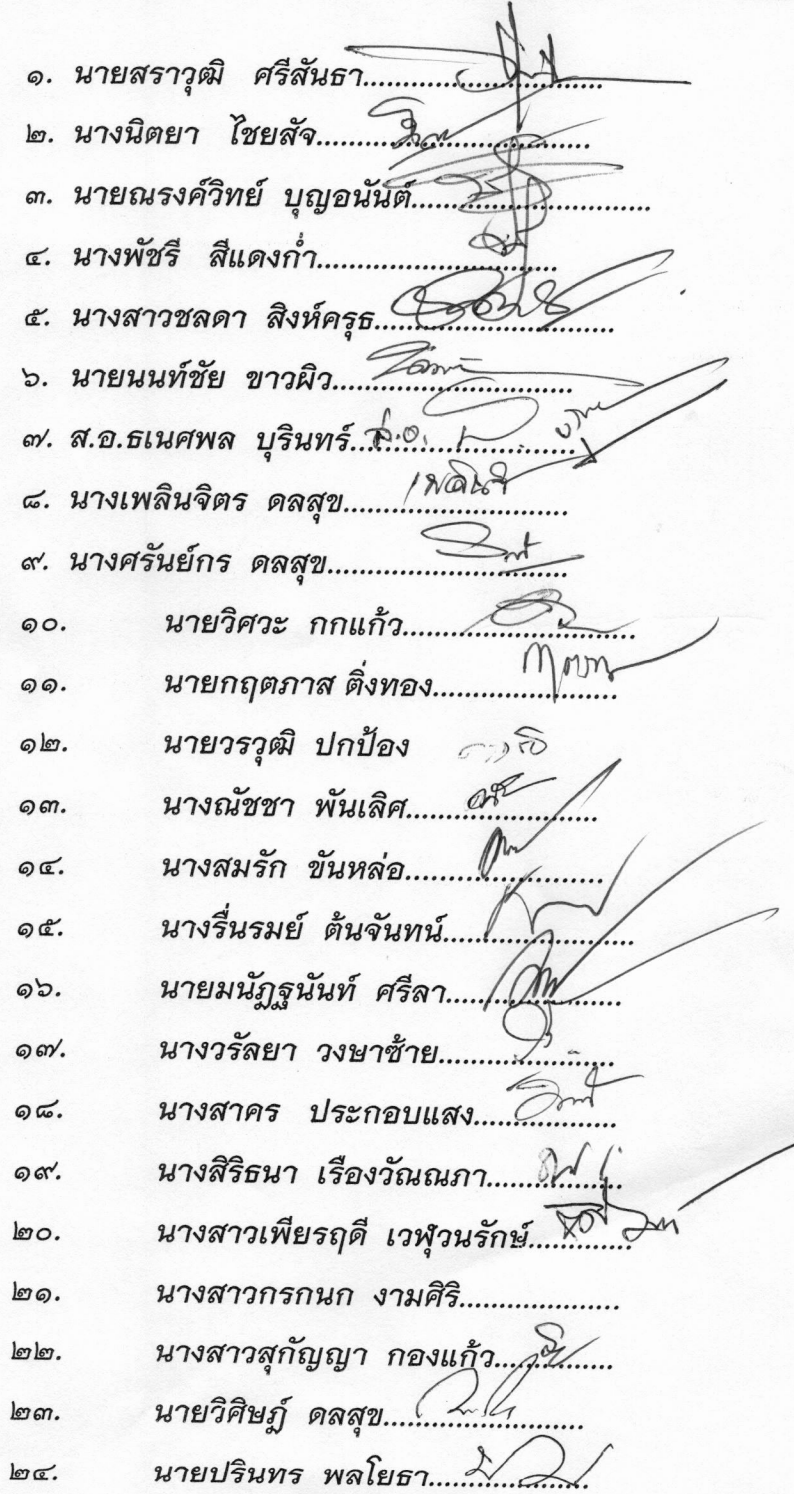 ๑. นายสราวุฒิ ศรีสันธา
๒. นางนิตยา ไชยสัจ
๓. นายณรงค์วิทย์ บุญอนันต์
๔. นางพัชรี สีแดงก่ำ
๕. นางสาวชลดา สิงห์ครุธ
๖. นายนนท์ชัย ขาวผิว
๗. ส.อ.ธเนศพล บุรินทร์ ส.อ.
๘. นางเพลินจิตร ดลสุข
๙. นางศรันย์กร ดลสุข
๑๐. นายวิศวะ กกแก้ว
๑๑. นายกฤตภาส ติ่งทอง
๑๒. นายวรวุฒิ ปกป้อง
๑๓. นางณัชชา พันเลิศ
๑๔. นางสมรัก ขันหล่อ
๑๕. นางรื่นรมย์ ต้นจันทน์
๑๖. นายมนัฏฐนันท์ ศรีลา
๑๗. นางวรัลยา วงษาซ้าย
๑๘. นางสาคร ประกอบแสง
๑๙. นางสิริธนา เรืองวัณณภา
๒๐. นางสาวเพียรฤดี เวฬุวนรักษ์
๒๑. นางสาวกรกนก งามศิริ
๒๒. นางสาวสุกัญญา กองแก้ว
๒๓. นายวิศิษฎ์ ดลสุข
๒๔. นายปรินทร พลโยธา